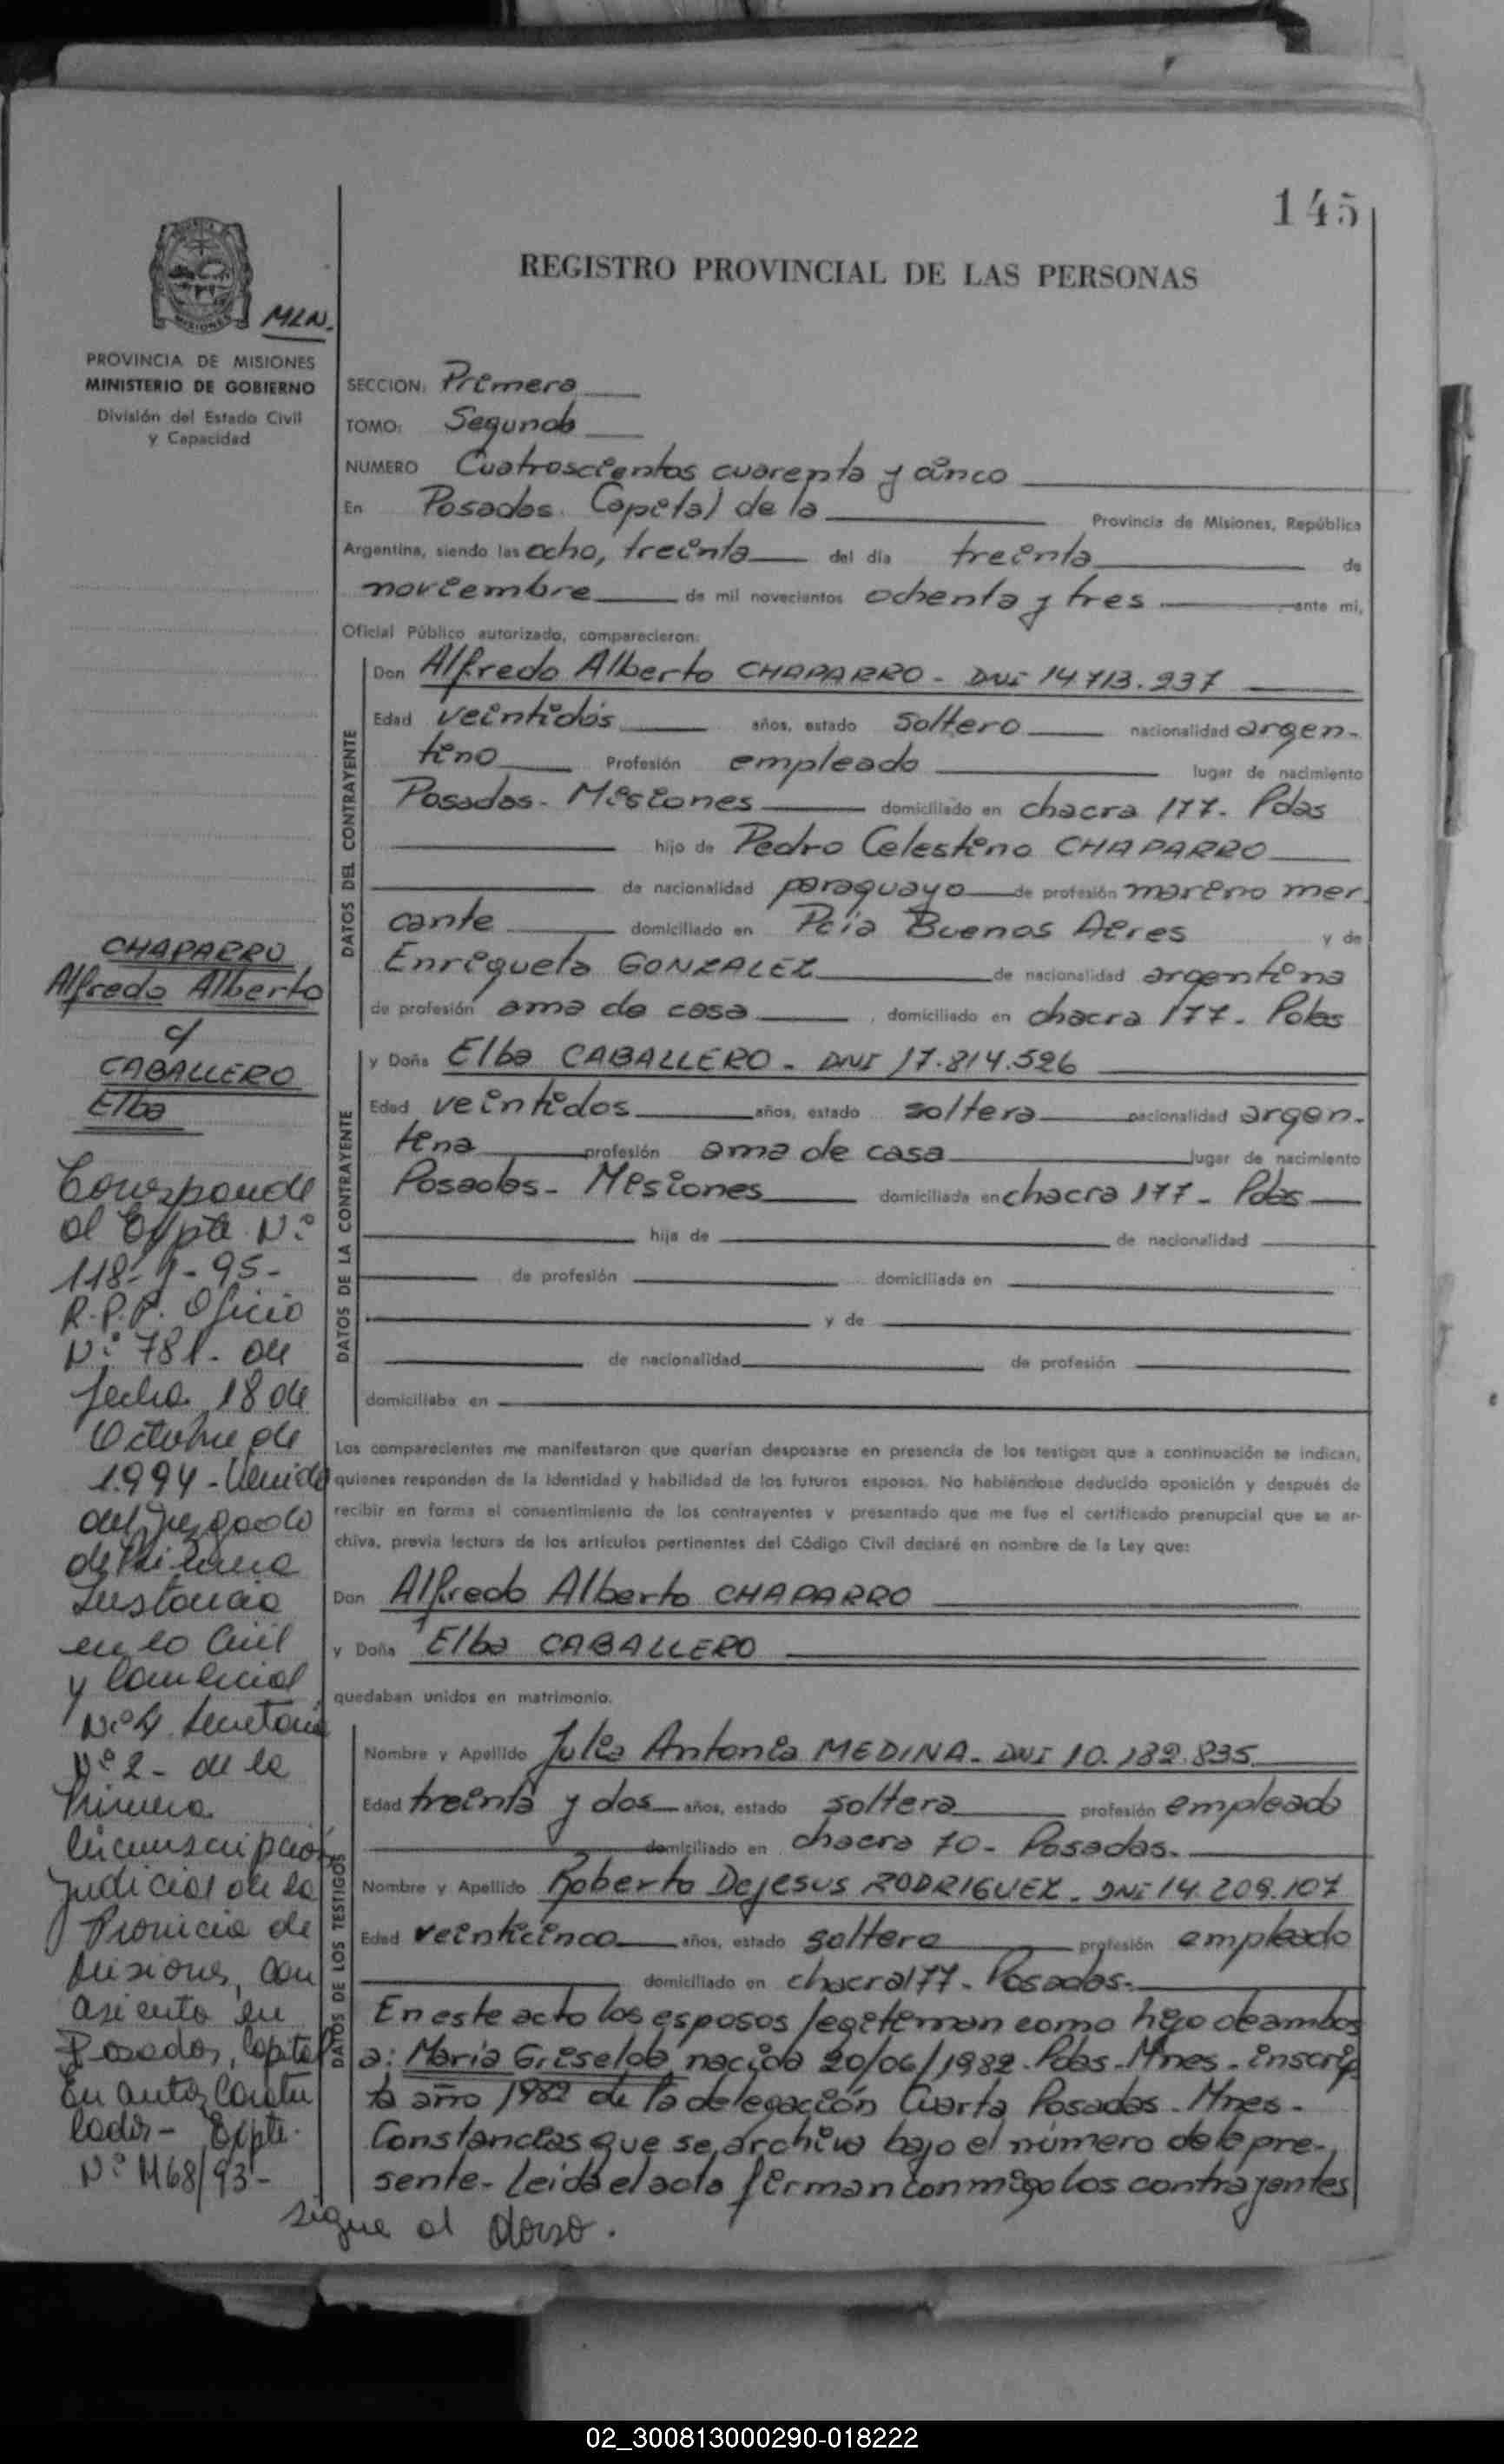 145
REGISTRO PROVINCIAL DE LAS PERSONAS
MISIONES
MLN.
PROVINCIA DE MISIONES
MINISTERIO DE GOBIERNO
División del Estado Civil
y Capacidad
SECCION: Primera
TOMO: Segundo
NUMERO Cuatroscientos cuarenta y cinco
En Posadas. Capital de la Provincia de Misiones, República
Argentina, siendo las ocho, treinta del día treinta de
noviembre de mil novecientos ochenta y tres ante mi,
Oficial Público autorizado, comparecieron:
DATOS DEL CONTRAYENTE
Don Alfredo Alberto CHAPARRO - DNI 14.713.237
Edad veintidós años, estado soltero nacionalidad argen-
tino Profesión empleado lugar de nacimiento
Posadas - Misiones domiciliado en chacra 177. Pdas
hijo de Pedro Celestino CHAPARRO
de nacionalidad paraguayo de profesión marino mer
cante domiciliado en Pcia Buenos Aires y de
Enriqueta GONZALEZ de nacionalidad argentina
de profesión ama de casa, domiciliado en chacra 177. Pdas
DATOS DE LA CONTRAYENTE
y Doña Elba CABALLERO - DNI 17.814.526
Edad veintidos años, estado soltera nacionalidad argen-
tina profesión ama de casa lugar de nacimiento
Posadas - Misiones domiciliada en chacra 177 - Pdas
hija de de nacionalidad
de profesión domiciliada en
y de
de nacionalidad de profesión
domiciliaba en
Los comparecientes me manifestaron que querían desposarse en presencia de los testigos que a continuación se indican,
quienes responden de la identidad y habilidad de los futuros esposos. No habiéndose deducido oposición y después de
recibir en forma el consentimiento de los contrayentes y presentado que me fue el certificado prenupcial que se ar-
chiva, previa lectura de los artículos pertinentes del Código Civil declaré en nombre de la Ley que:
Don Alfredo Alberto CHAPARRO
y Doña Elba CABALLERO
quedaban unidos en matrimonio.
DATOS DE LOS TESTIGOS
Nombre y Apellido Julia Antonia MEDINA - DNI 10.182.835
Edad treinta y dos años, estado soltera profesión empleado
domiciliado en chacra 70 - Posadas.
Nombre y Apellido Roberto Dejesus RODRIGUEZ - DNI 14.209.107
Edad veinticinco años, estado soltero profesión empleado
domiciliado en chacra 177 - Posadas.
En este acto los esposos legitiman como hijo de ambos
a: Maria Griselda, nacida 20/06/1982. Pdas. Mnes. inscrip
ta año 1982 de la delegación Cuarta Posadas. Mnes.
Constancias que se archiva bajo el número de la pre-
sente. Leida el acta firman conmigo los contrayentes
sigue al dorso.
CHAPARRO
Alfredo Alberto
c/
CABALLERO
Elba
Corresponde
al Expte. Nº
118- -95-
R.P.P. Oficio
Nº 781- de
fecha 18 de
Octubre de
1.994 - Venido
del Juzgado
de Primera
Instancia
en lo Civil
y Comercial
Nº 4 Secretaria
Nº 2 - de la
Primera
Circunscripción
Judicial de la
Provincia de
Misiones, con
asiento en
Posadas, Capital
En autos
- Expte.
Nº 1168/93-
02_300813000290-018222